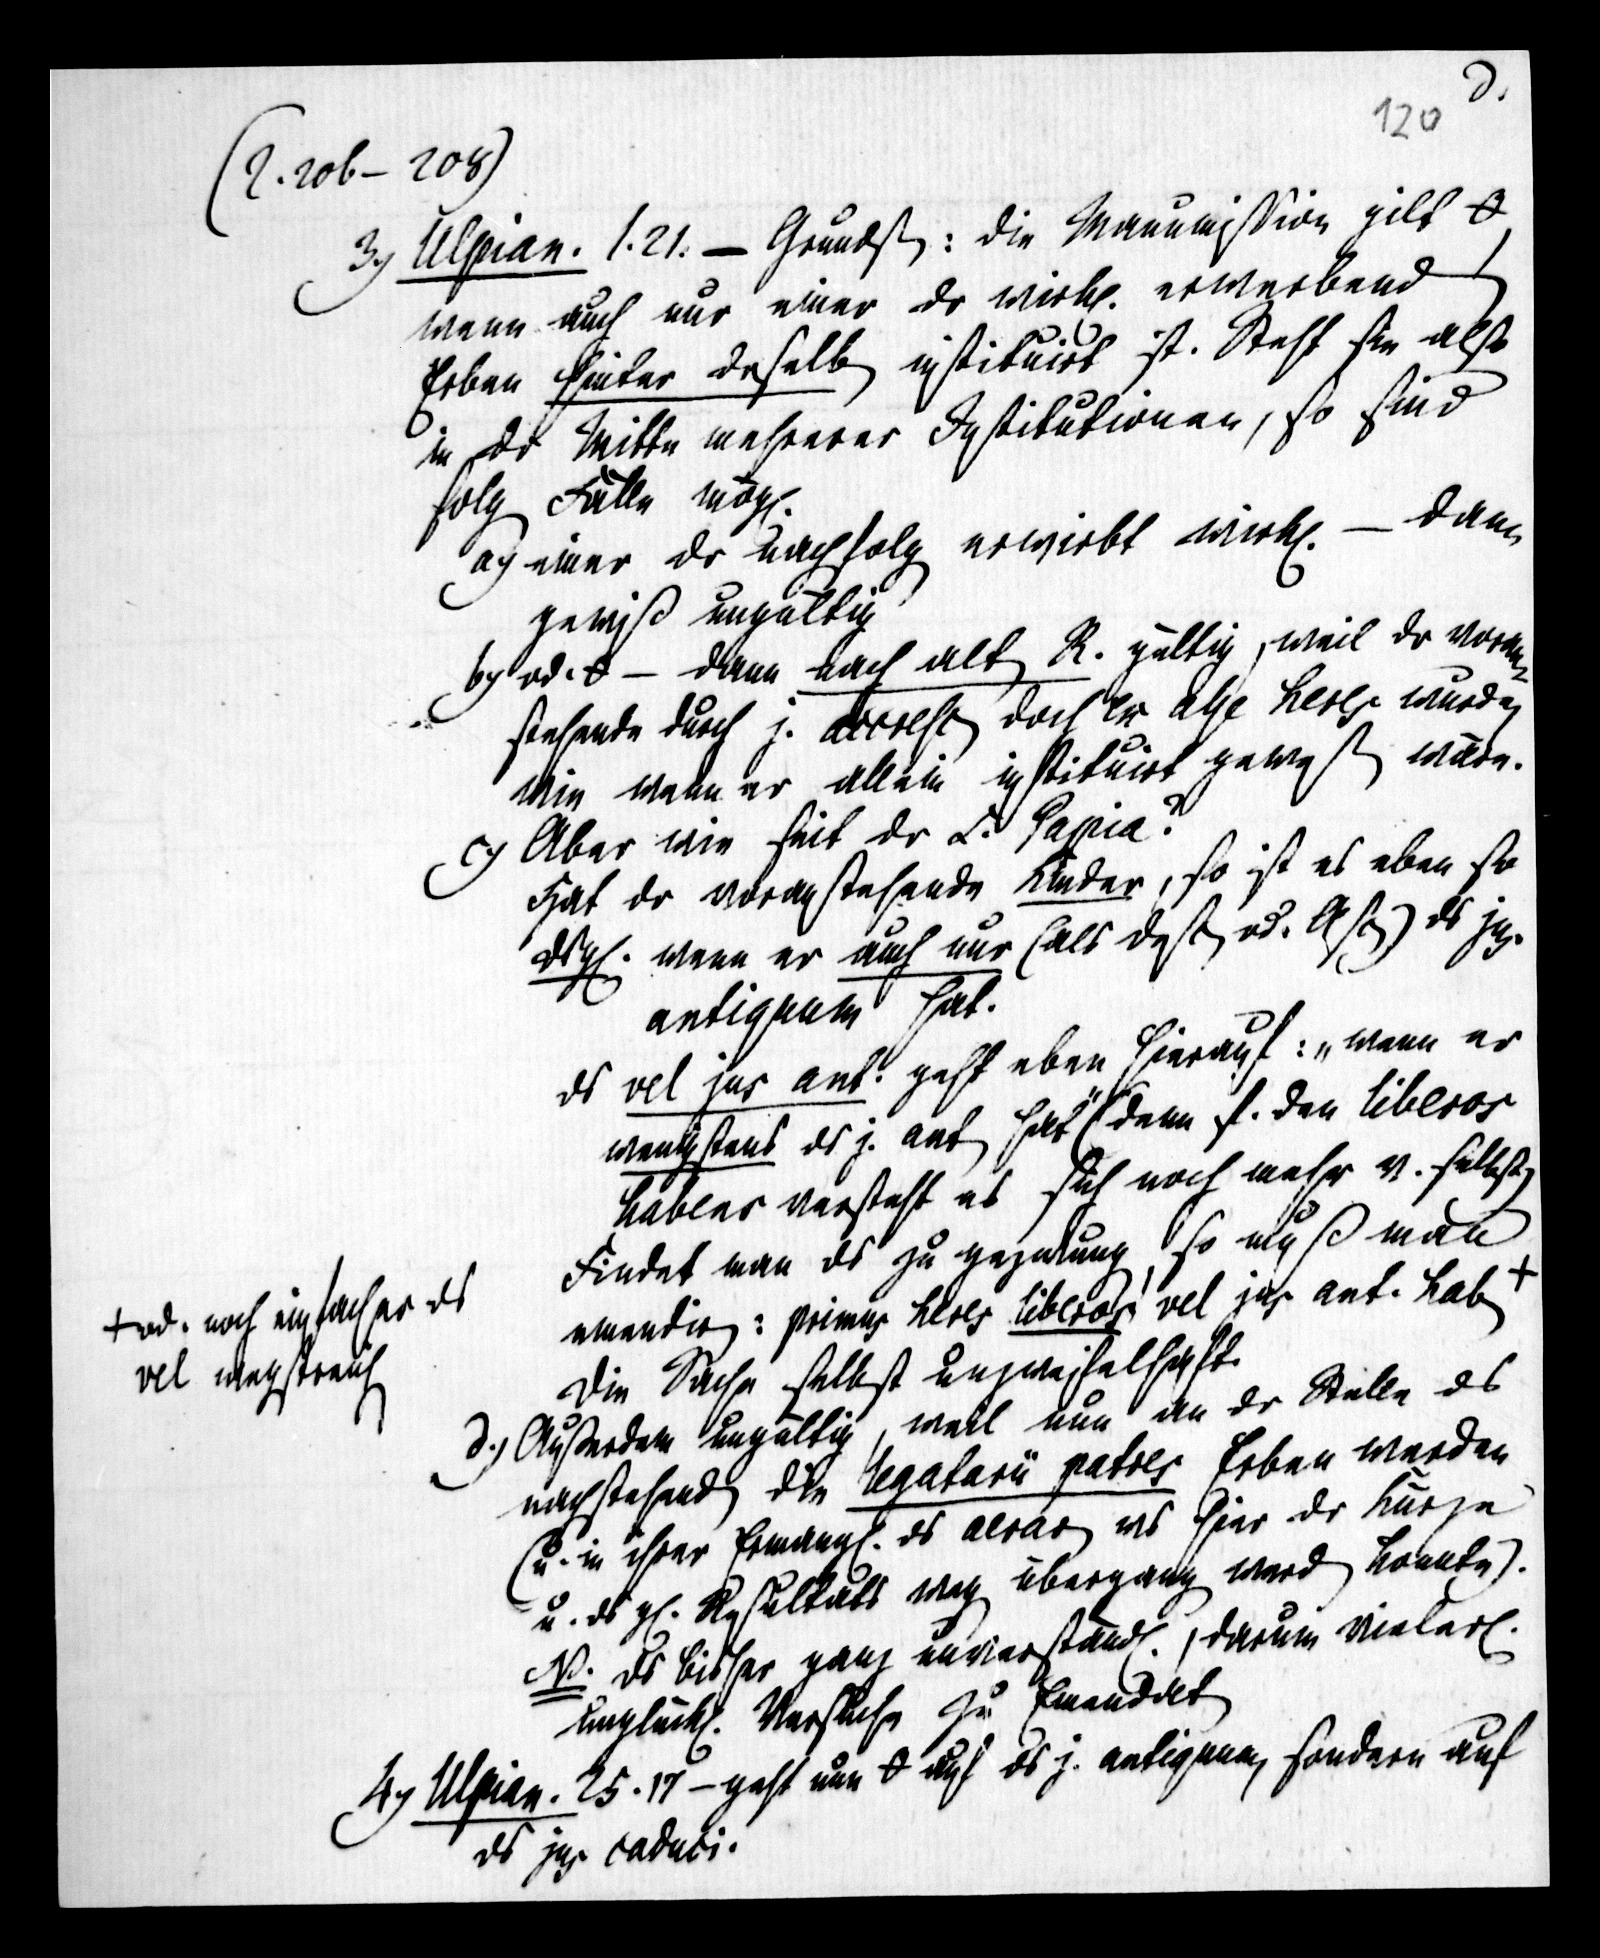 d.
120
(§. 206 – 208)
3) Ulpian. 1. 21. – Grunds: die Manumission gilt 0
wenn auch nur einer dr wirkl. erwerbend
Erben hinter drselb instituirt ist. Steht sie also
in dr Mitte mehrerer Institutionen, so sind
folg Fälle mögl.
a) einer dr nachfolg erwirbt wirkl. – dann
gewiß ungültig
b) od. 0 – dann nach alt R. gültig, weil dr voran
stehende durch j. accresc doch ex asse heres wurde,
wie wenn er allein instituirt gewes wäre.
c) Aber wie seit dr L. Papia?
Hat dr voranstehende Kinder, so ist es eben so
dsgl. wenn er auch nur (als Desc od. Asc) ds jus
antiquum hat.
ds vel jus ant. geht eben hierauf: „wenn er
wenigstens ds j. ant hat" (denn f. den liberos
habens versteht es sich noch mehr v. selbst,
Findet man ds zu gezwung, so muß man
emendir: primus heres liberos vel jus ant. hab +
Die Sache selbst unzweifelhaft.
+ od. noch einfacher ds
vel wegstreich
d.) Außerdem ungültig, weil nun an dr Stelle ds
nachstehend die legatarii patres Erben werden
(u. in ihrer Ermangl. ds aerar ws hier dr Kürze
u. ds gl. Resultats weg übergang werd konnte).
NB. ds bisher ganz unverständl., darum vielerl.
unglückl. Versuche zu Emendat
4) Ulpian. 25. 17 – geht nun 0 auf ds j. antiquum, sondern auf
ds jus caduci.